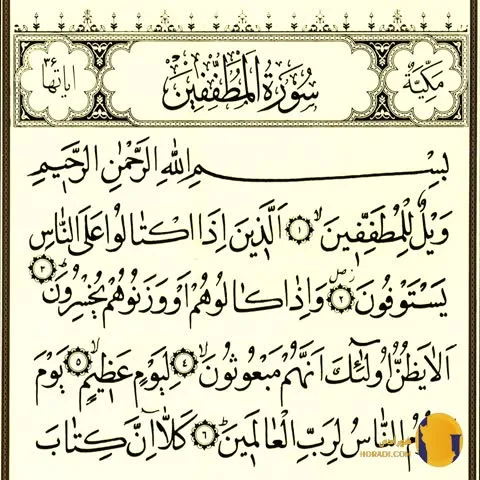 مكية
سورة المطففين
اياتها ٣۶
بسم الله الرحمن الرحيم
ويل للمطففين ١ الذين اذا اكتالوا على الناس
يستوفون ٢ واذا كالوهم او وزنوهم يخسرون ٣
الا يظن اولئك انهم مبعوثون ٤ ليوم عظيم ٥ يوم
الناس لرب العالمين ٦ كلا ان كتاب
HORADI.COM